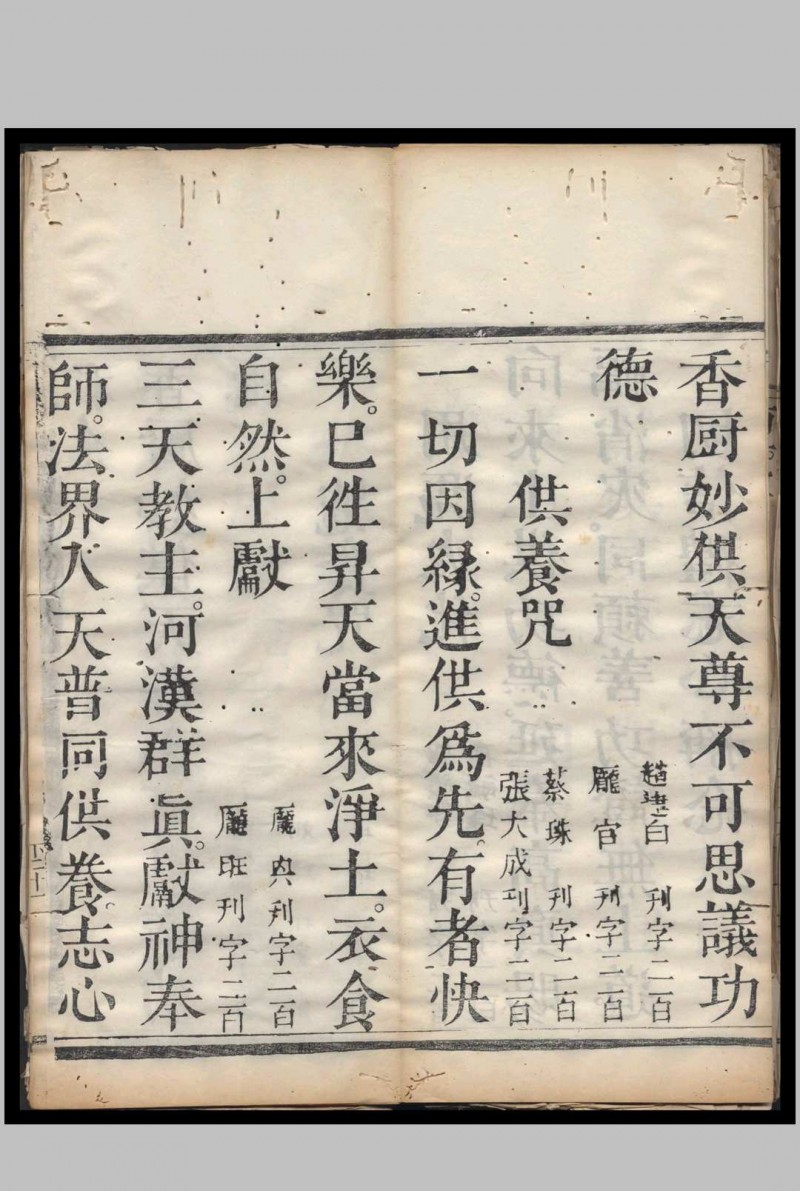 香厨妙供天尊不可思議功
德
白 刊字二百
龐官 刊字二百
供養咒
蔡珠 刊字二百
張大成刊字二百
一切因緣。進供爲先。有者快
樂。巳徃昇天當來淨土。衣食
自然。上獻
龐典刊字二百
龐班刊字二百
三天教主。河漢群眞。獻神奉
師。法界人天普同供養。志心